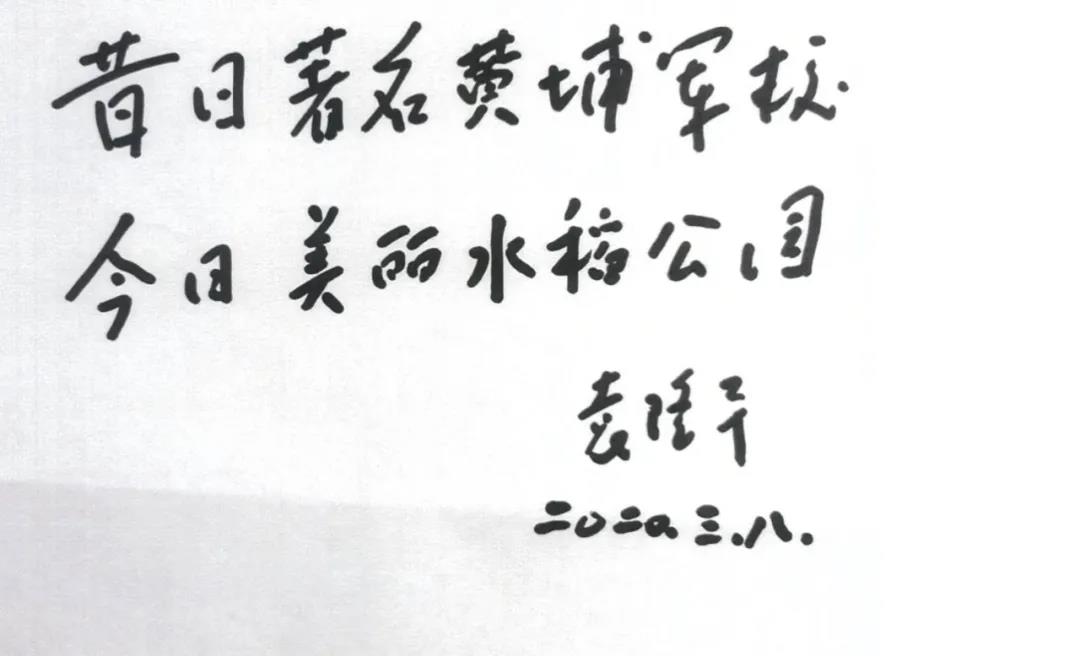 昔日著名黄埔军校
今日美丽水稻公园
袁隆平
二〇二〇.三.八.